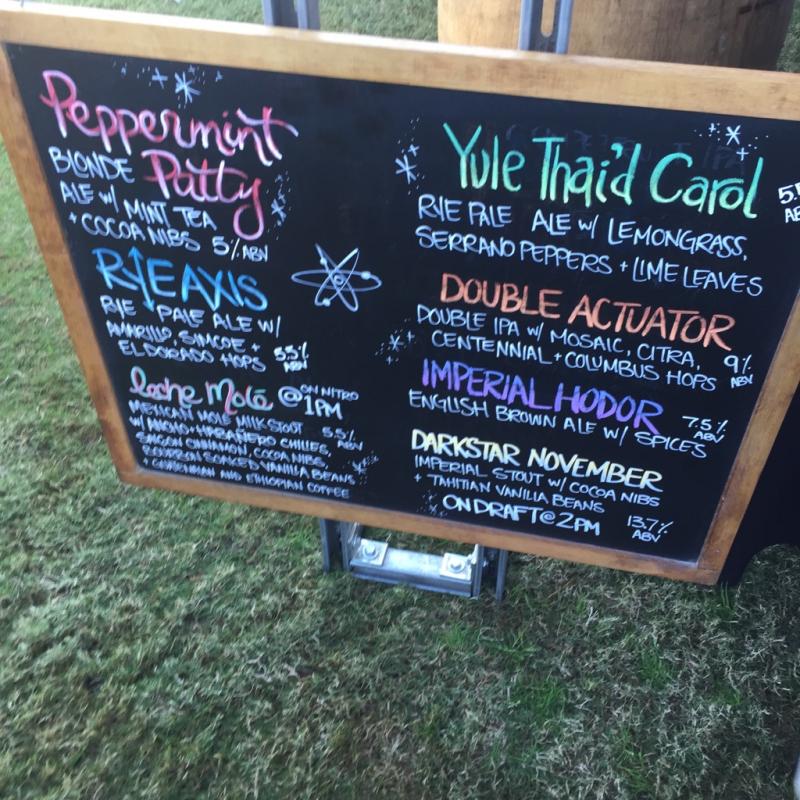 Peppermint
Patty
BLONDE
ALE w/ MINT TEA
+ COCOA NIBS 5% ABV
RYE AXIS
RYE PALE ALE W/
AMARILLO, SIMCOE +
EL DORADO HOPS 5.5% ABV
Leche Molé @ ON NITRO 1PM
MEXICAN MOLE MILK STOUT
W/ ANCHO + HABAÑERO CHILLES, 5.5% ABV
SAIGON CINNAMON, COCOA NIBS,
BOURBON SOAKED VANILLA BEANS
+ GUATEMALAN AND ETHIOPIAN COFFEE
Yule Thai'd Carol
RYE PALE ALE w/ LEMONGRASS,
SERRANO PEPPERS + LIME LEAVES
DOUBLE ACTUATOR
DOUBLE IPA w/ MOSAIC, CITRA,
CENTENNIAL + COLUMBUS HOPS 9% ABV
IMPERIAL HODOR
ENGLISH BROWN ALE W/ SPICES 7.5% ABV
DARKSTAR NOVEMBER
IMPERIAL STOUT W/ COCOA NIBS
+ TAHITIAN VANILLA BEANS
ON DRAFT @ 2PM 13.7% ABV